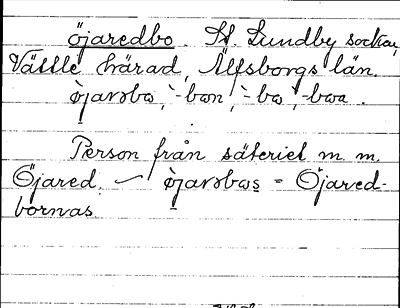 öjaredbo. St. Lundby socken,
Vättle härad, Älfsborgs län.
öjarəbω, -bωn, -bω, -bωa.
Person från säteriet m. m.
Öjared. — öjarəbωs = Öjared-
bornas.